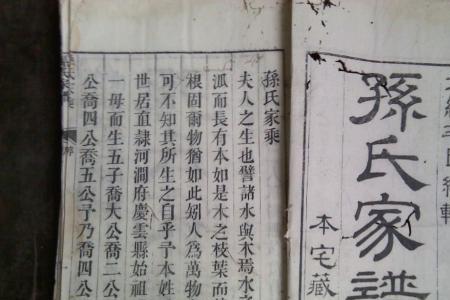 孫氏家譜
本宅藏
孫氏家乘
夫人之生也譬諸水與木焉水
泒而長有本如是木之枝葉而
根固爾物猶如此矧人爲萬物
可不知其所生之自乎予本姓
世居直隷河澗府慶雲縣始祖
一毋而生五子喬大公喬二公
公喬四公喬五公予乃喬四公